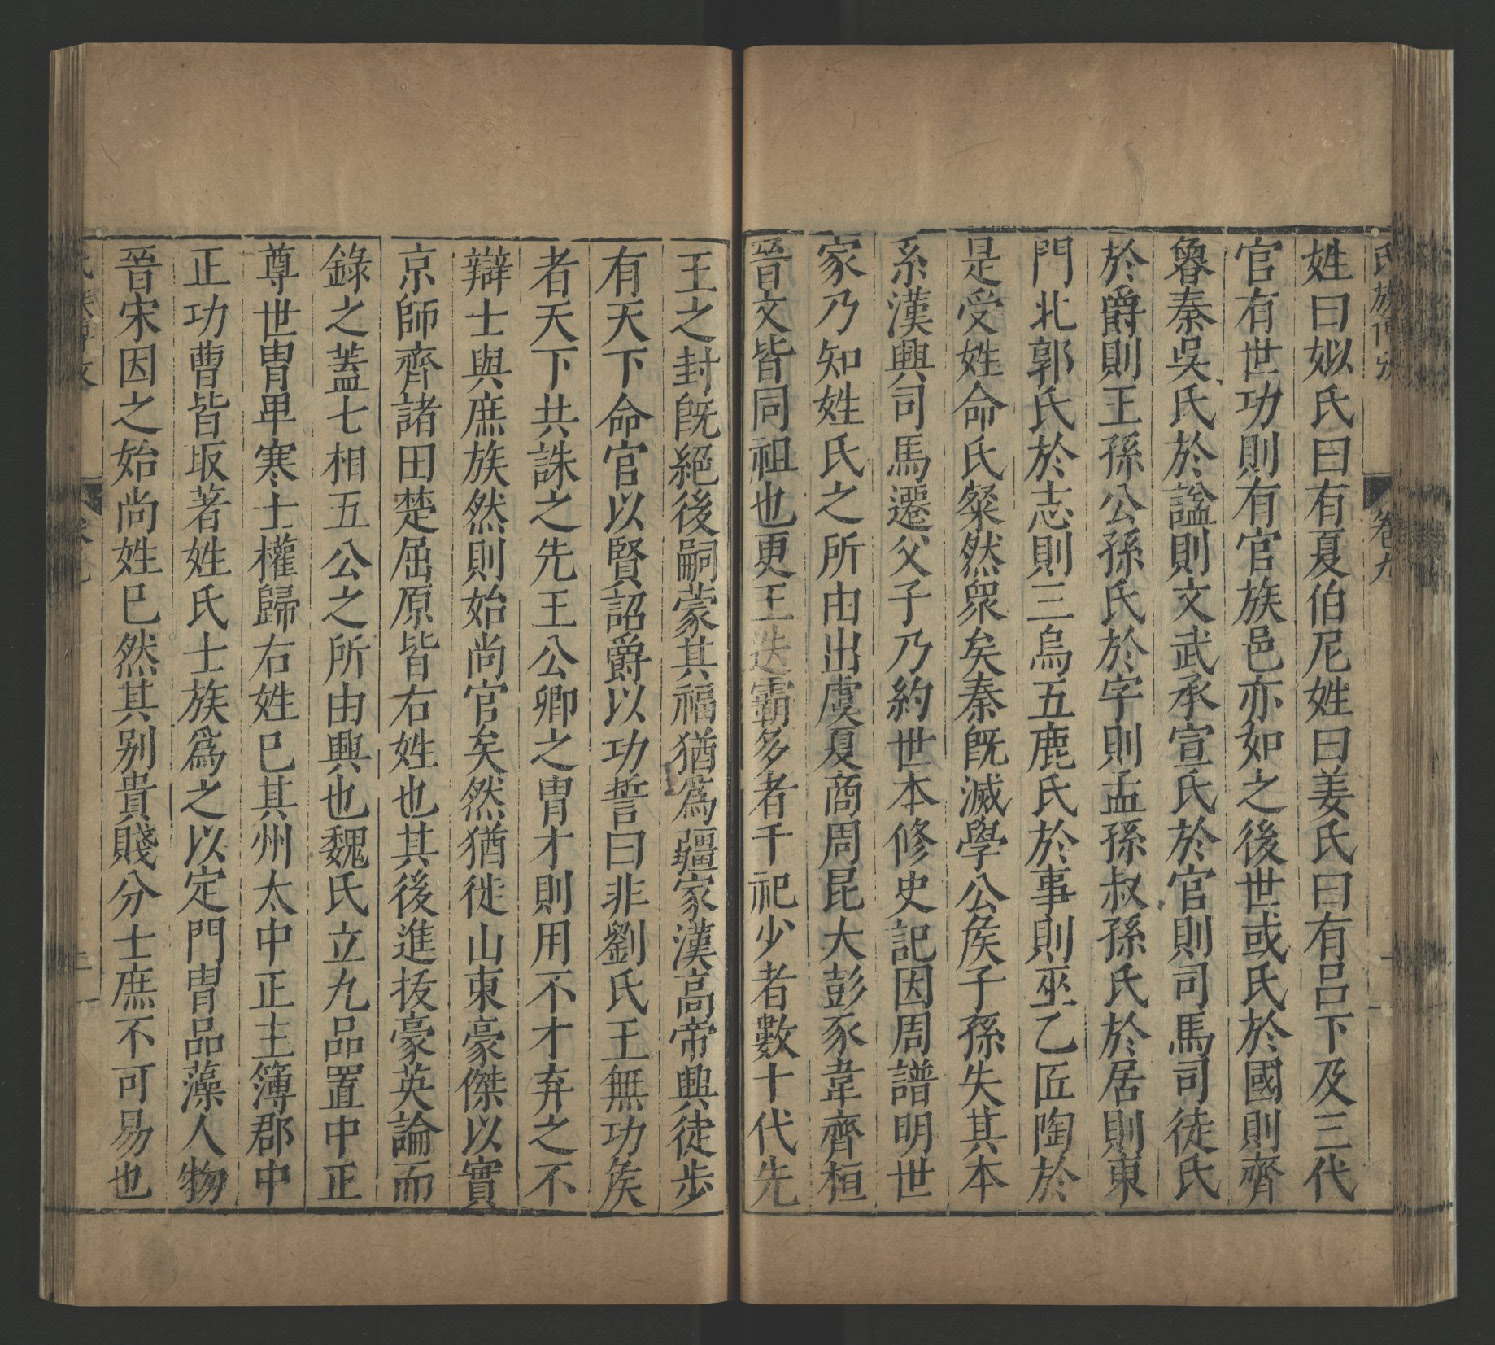 氏族博攷 卷九
姓曰姒氏曰有夏伯尼姓曰姜氏曰有呂下及三代
官有世功則有官族邑亦如之後世或氏於國則齊
魯秦吳氏於謚則文武承宣氏於官則司馬司徒氏
於爵則王孫公孫氏於字則孟孫叔孫氏於居則東
門北郭氏於志則三烏五鹿氏於事則巫乙匠陶於
是受姓命氏粲然衆矣秦旣滅學公矦子孫失其本
系漢興司馬遷父子乃約世本修史記因周譜明世
家乃知姓氏之所由出虞夏商周昆大彭豕韋齊桓
晉文皆同祖也更王迭霸多者千祀少者數十代先
王之封旣絕後嗣蒙其福猶爲彊家漢高帝興徒步
有天下命官以賢詔爵以功誓曰非劉氏王無功矦
者天下共誅之先王公卿之冑才則用不才弃之不
辯士與庶族然則始尚官矣然猶徙山東豪傑以實
京師齊諸田楚屈原皆右姓也其後進拔豪英論而
錄之蓋七相五公之所由興也魏氏立九品置中正
尊世冑卑寒士權歸右姓已其州太中正主簿郡中
正功曹皆取著姓氏士族爲之以定門冑品藻人物
晉宋因之始尚姓已然其别貴賤分士庶不可易也